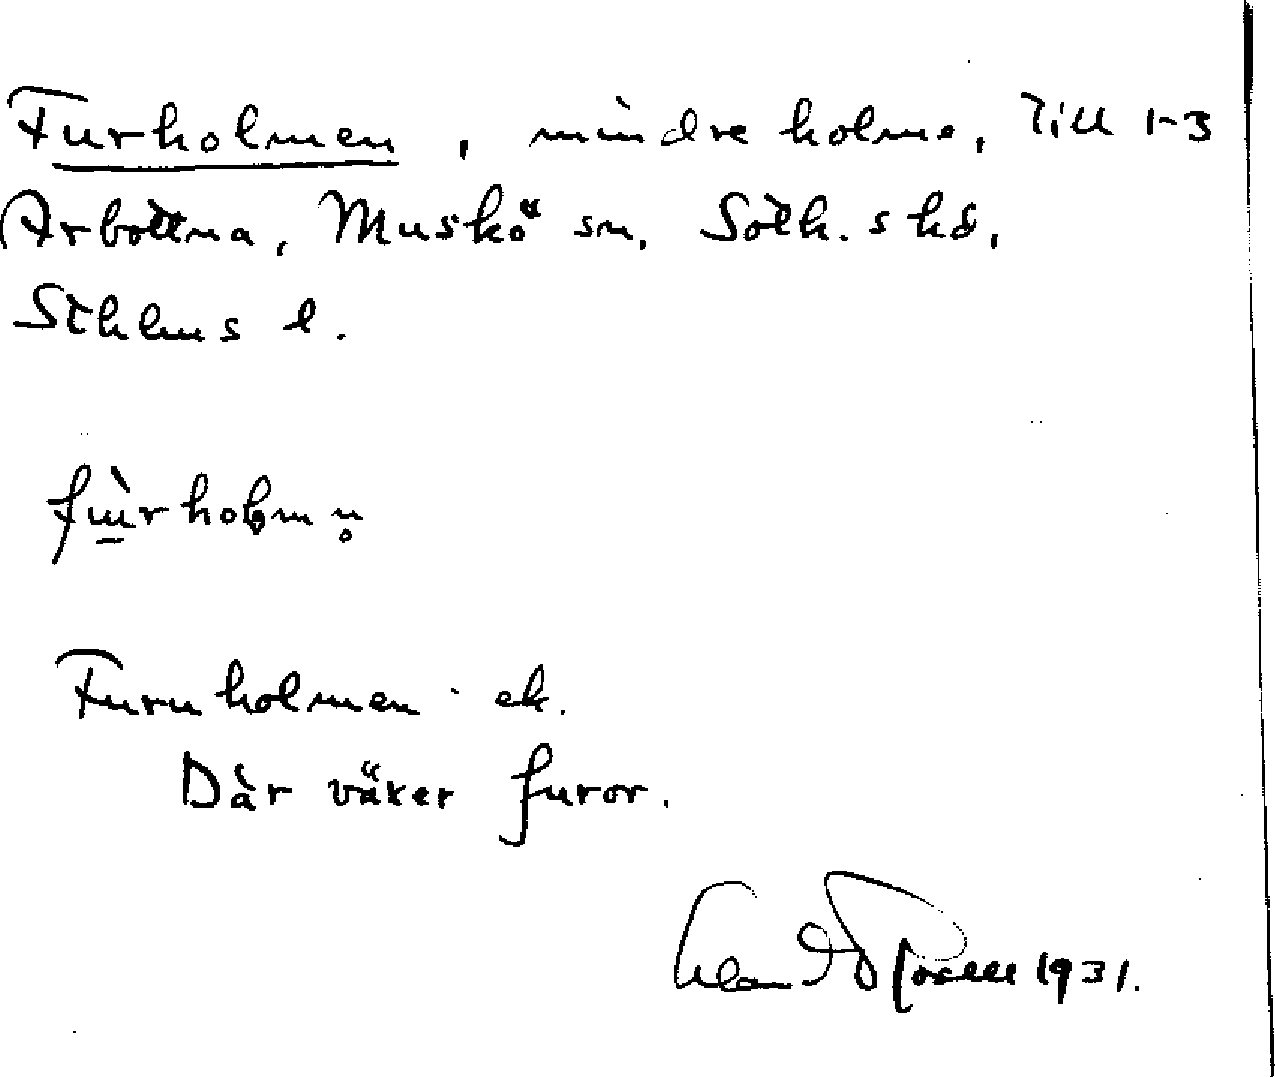 Furholmen, mindre holme, Till 1-3
Arbottna, Muskö sn, Soth. skd,
Sthlms l.
fùrholmn̥
Furuholmen ek.
Där växer furor.
1931.